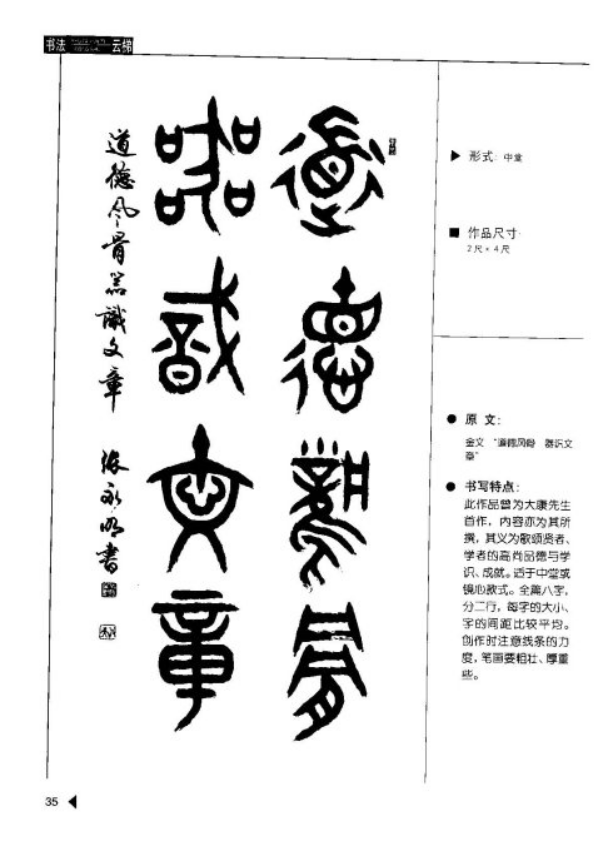 书法
云梯
道德風骨
器識文章
道德风骨器識文章 張永明書
▶ 形式: 中堂
■ 作品尺寸:
2尺×4尺
● 原 文:
金文 “道德风骨 器识文
章”
● 书写特点:
此作品曾为大康先生
首作, 内容亦为其所
撰, 其义为歌颂贤者、
学者的高尚品德与学
识、成就。适于中堂或
镜心款式。全篇八字,
分二行, 每字的大小、
字的间距比较平均。
创作时注意线条的力
度, 笔画要粗壮、厚重
些。
35 ◀